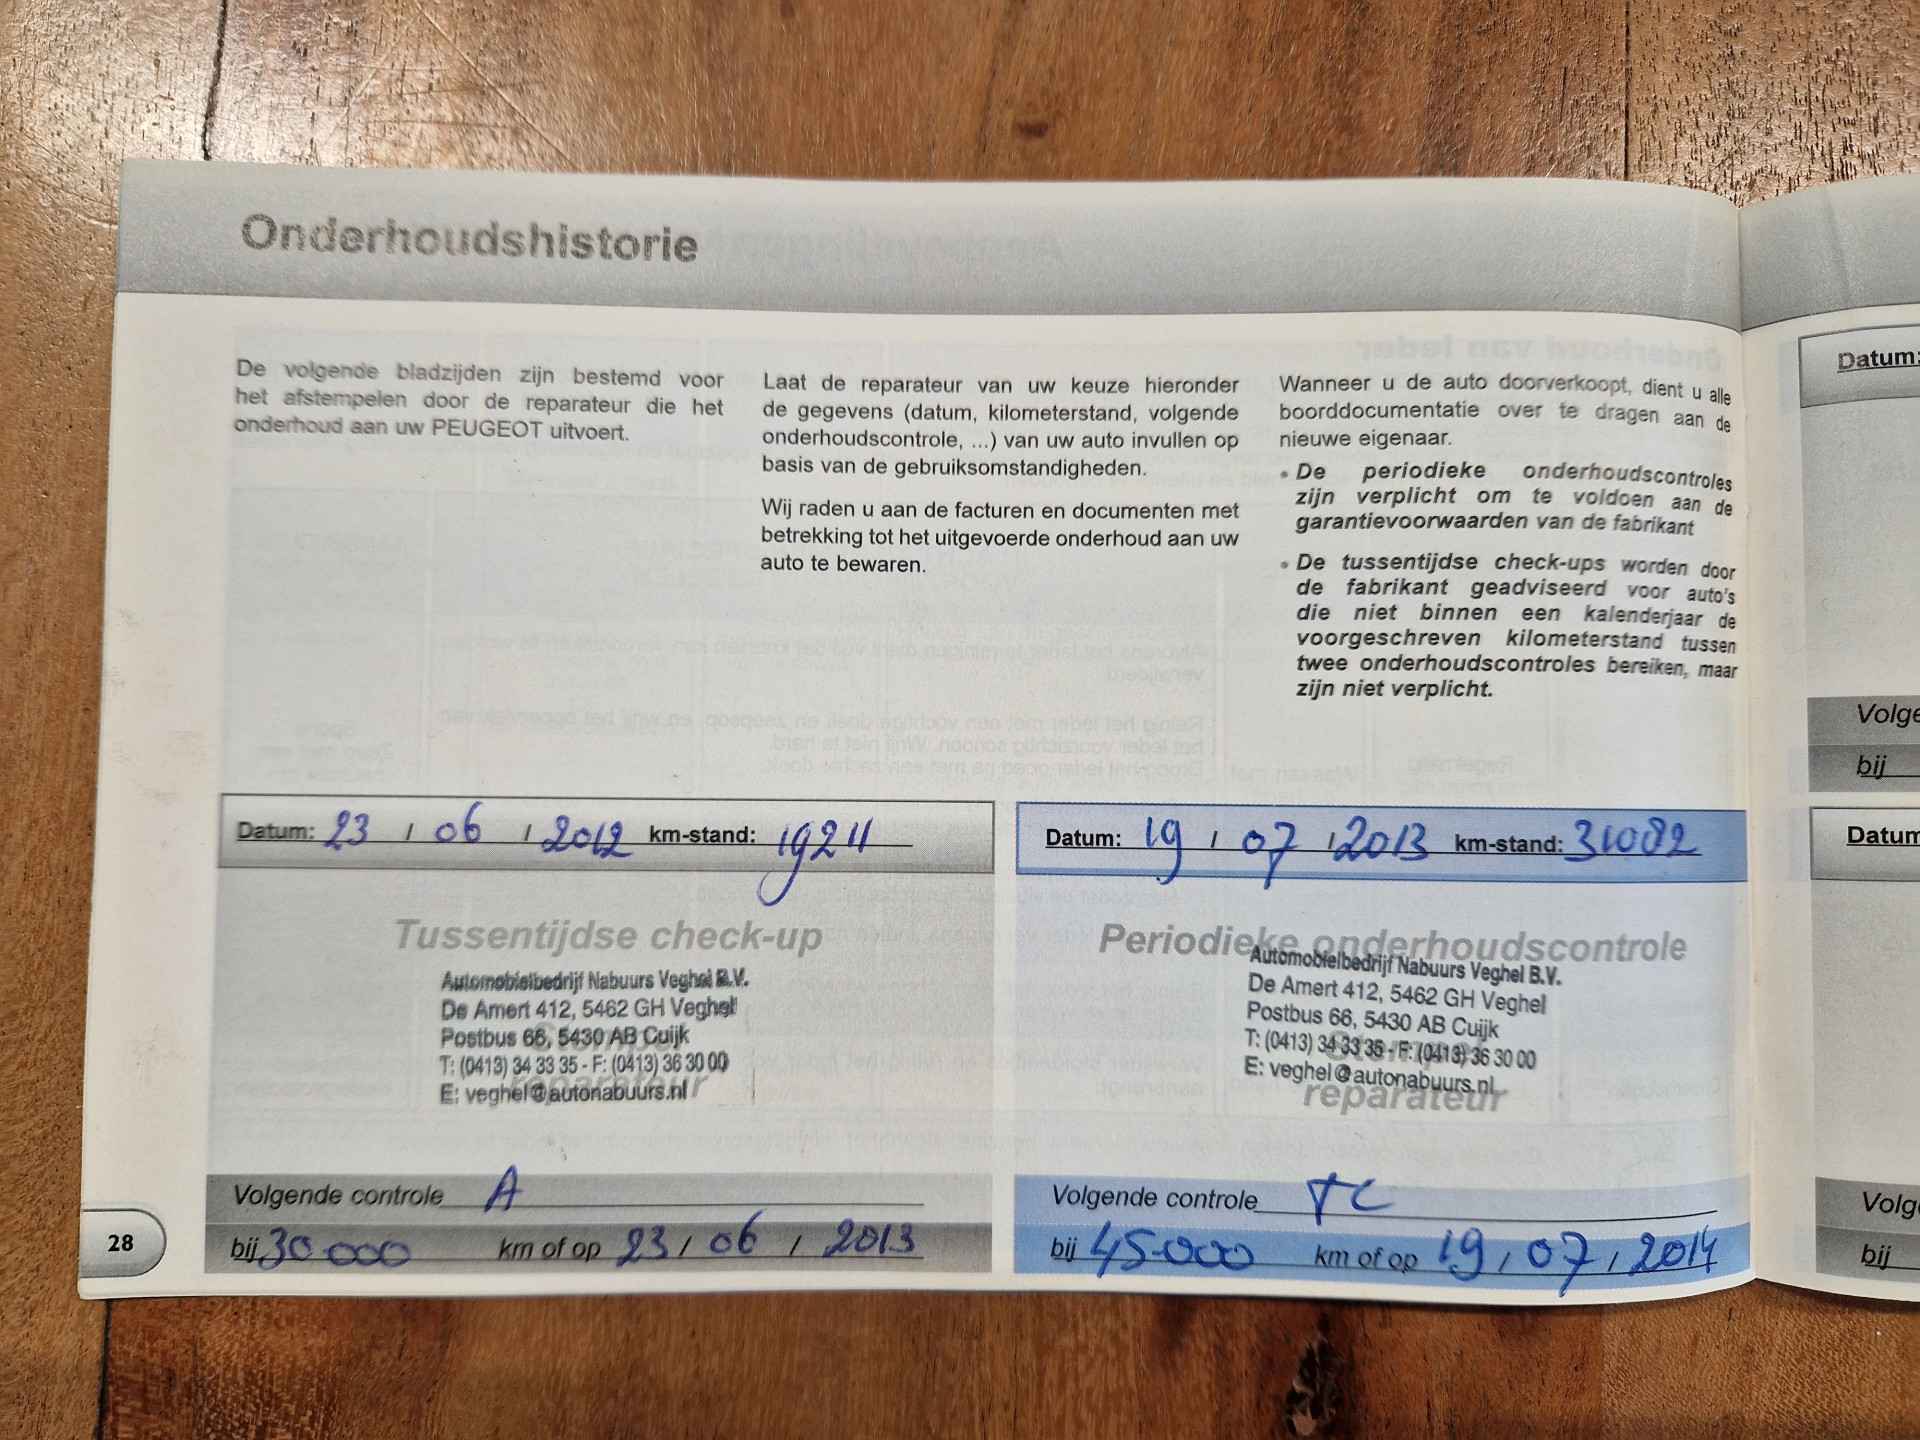 Onderhoudshistorie
De volgende bladzijden zijn bestemd voor
het afstempelen door de reparateur die het
onderhoud aan uw PEUGEOT uitvoert.
Laat de reparateur van uw keuze hieronder
de gegevens (datum, kilometerstand, volgende
onderhoudscontrole, ...) van uw auto invullen op
basis van de gebruiksomstandigheden.
Wij raden u aan de facturen en documenten met
betrekking tot het uitgevoerde onderhoud aan uw
auto te bewaren.
Wanneer u de auto doorverkoopt, dient u alle
boorddocumentatie over te dragen aan de
nieuwe eigenaar.
• De periodieke onderhoudscontroles
zijn verplicht om te voldoen aan de
garantievoorwaarden van de fabrikant
• De tussentijdse check-ups worden door
de fabrikant geadviseerd voor auto's
die niet binnen een kalenderjaar de
voorgeschreven kilometerstand tussen
twee onderhoudscontroles bereiken, maar
zijn niet verplicht.
Datum: 23 / 06 / 2012 km-stand: 19211
Tussentijdse check-up
Automobielbedrijf Nabuurs Veghel B.V.
De Amert 412, 5462 GH Veghel
Postbus 66, 5430 AB Cuijk
T: (0413) 34 33 35 - F: (0413) 36 30 00
E: veghel@autonabuurs.nl
Stempel
reparateur
Volgende controle A
bij 30 000 km of op 23 / 06 / 2013
Datum: 19 / 07 / 2013 km-stand: 31082
Periodieke onderhoudscontrole
Automobielbedrijf Nabuurs Veghel B.V.
De Amert 412, 5462 GH Veghel
Postbus 66, 5430 AB Cuijk
T: (0413) 34 33 35 - F: (0413) 36 30 00
E: veghel@autonabuurs.nl
Stempel
reparateur
Volgende controle TC
bij 45.000 km of op 19 / 07 / 2014
28
Datum:
bij
Datum
bij